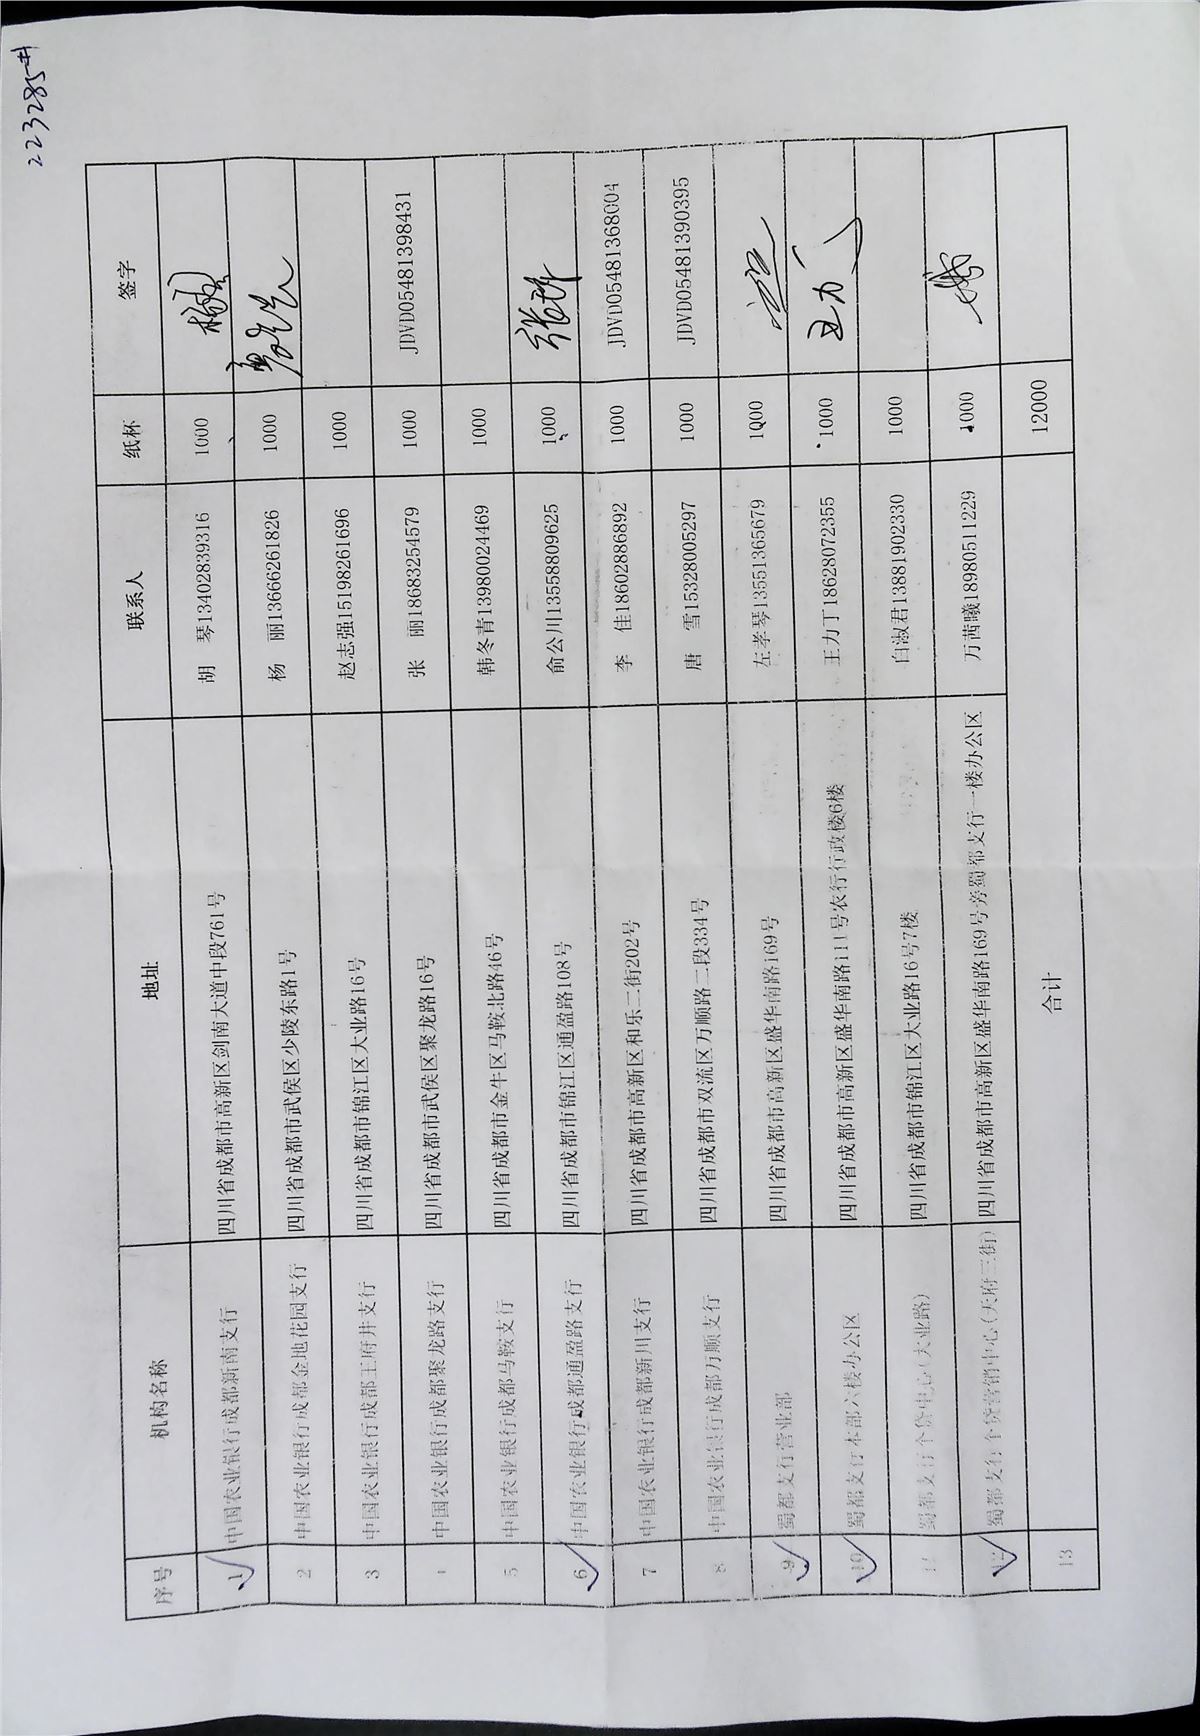 223285#
序号 机构名称 地址 联系人 纸杯 签字
1 中国农业银行成都新南支行 四川省成都市高新区剑南大道中段761号 胡 琴13402839316 1000
2 中国农业银行成都金地花园支行 四川省成都市武侯区少陵东路1号 杨 丽13666261826 1000
3 中国农业银行成都王府井支行 四川省成都市锦江区大业路16号 赵志强15198261696 1000
4 中国农业银行成都聚龙路支行 四川省成都市武侯区聚龙路16号 张 丽18683254579 1000 JDVD05481398431
5 中国农业银行成都马鞍支行 四川省成都市金牛区马鞍北路46号 韩冬青13980024469 1000
6 中国农业银行成都通盈路支行 四川省成都市锦江区通盈路108号 俞公川13558809625 1000
7 中国农业银行成都新川支行 四川省成都市高新区和乐二街202号 李 佳18602886892 1000 JDVD05481368004
8 中国农业银行成都万顺支行 四川省成都市双流区万顺路二段334号 唐 雪15328005297 1000 JDVD05481390395
9 蜀都支行营业部 四川省成都市高新区盛华南路169号 左孝琴13551365679 1000
10 蜀都支行本部六楼办公区 四川省成都市高新区盛华南路111号农行行政楼6楼 王力丁18628072355 1000 王力丁
11 蜀都支行个贷中心(大业路) 四川省成都市锦江区大业路16号7楼 白淑君13881902330 1000
12 蜀都支行个贷营销中心(天府三街) 四川省成都市高新区盛华南路169号旁蜀都支行一楼办公区 万茜曦18980511229 1000
13 合计 12000